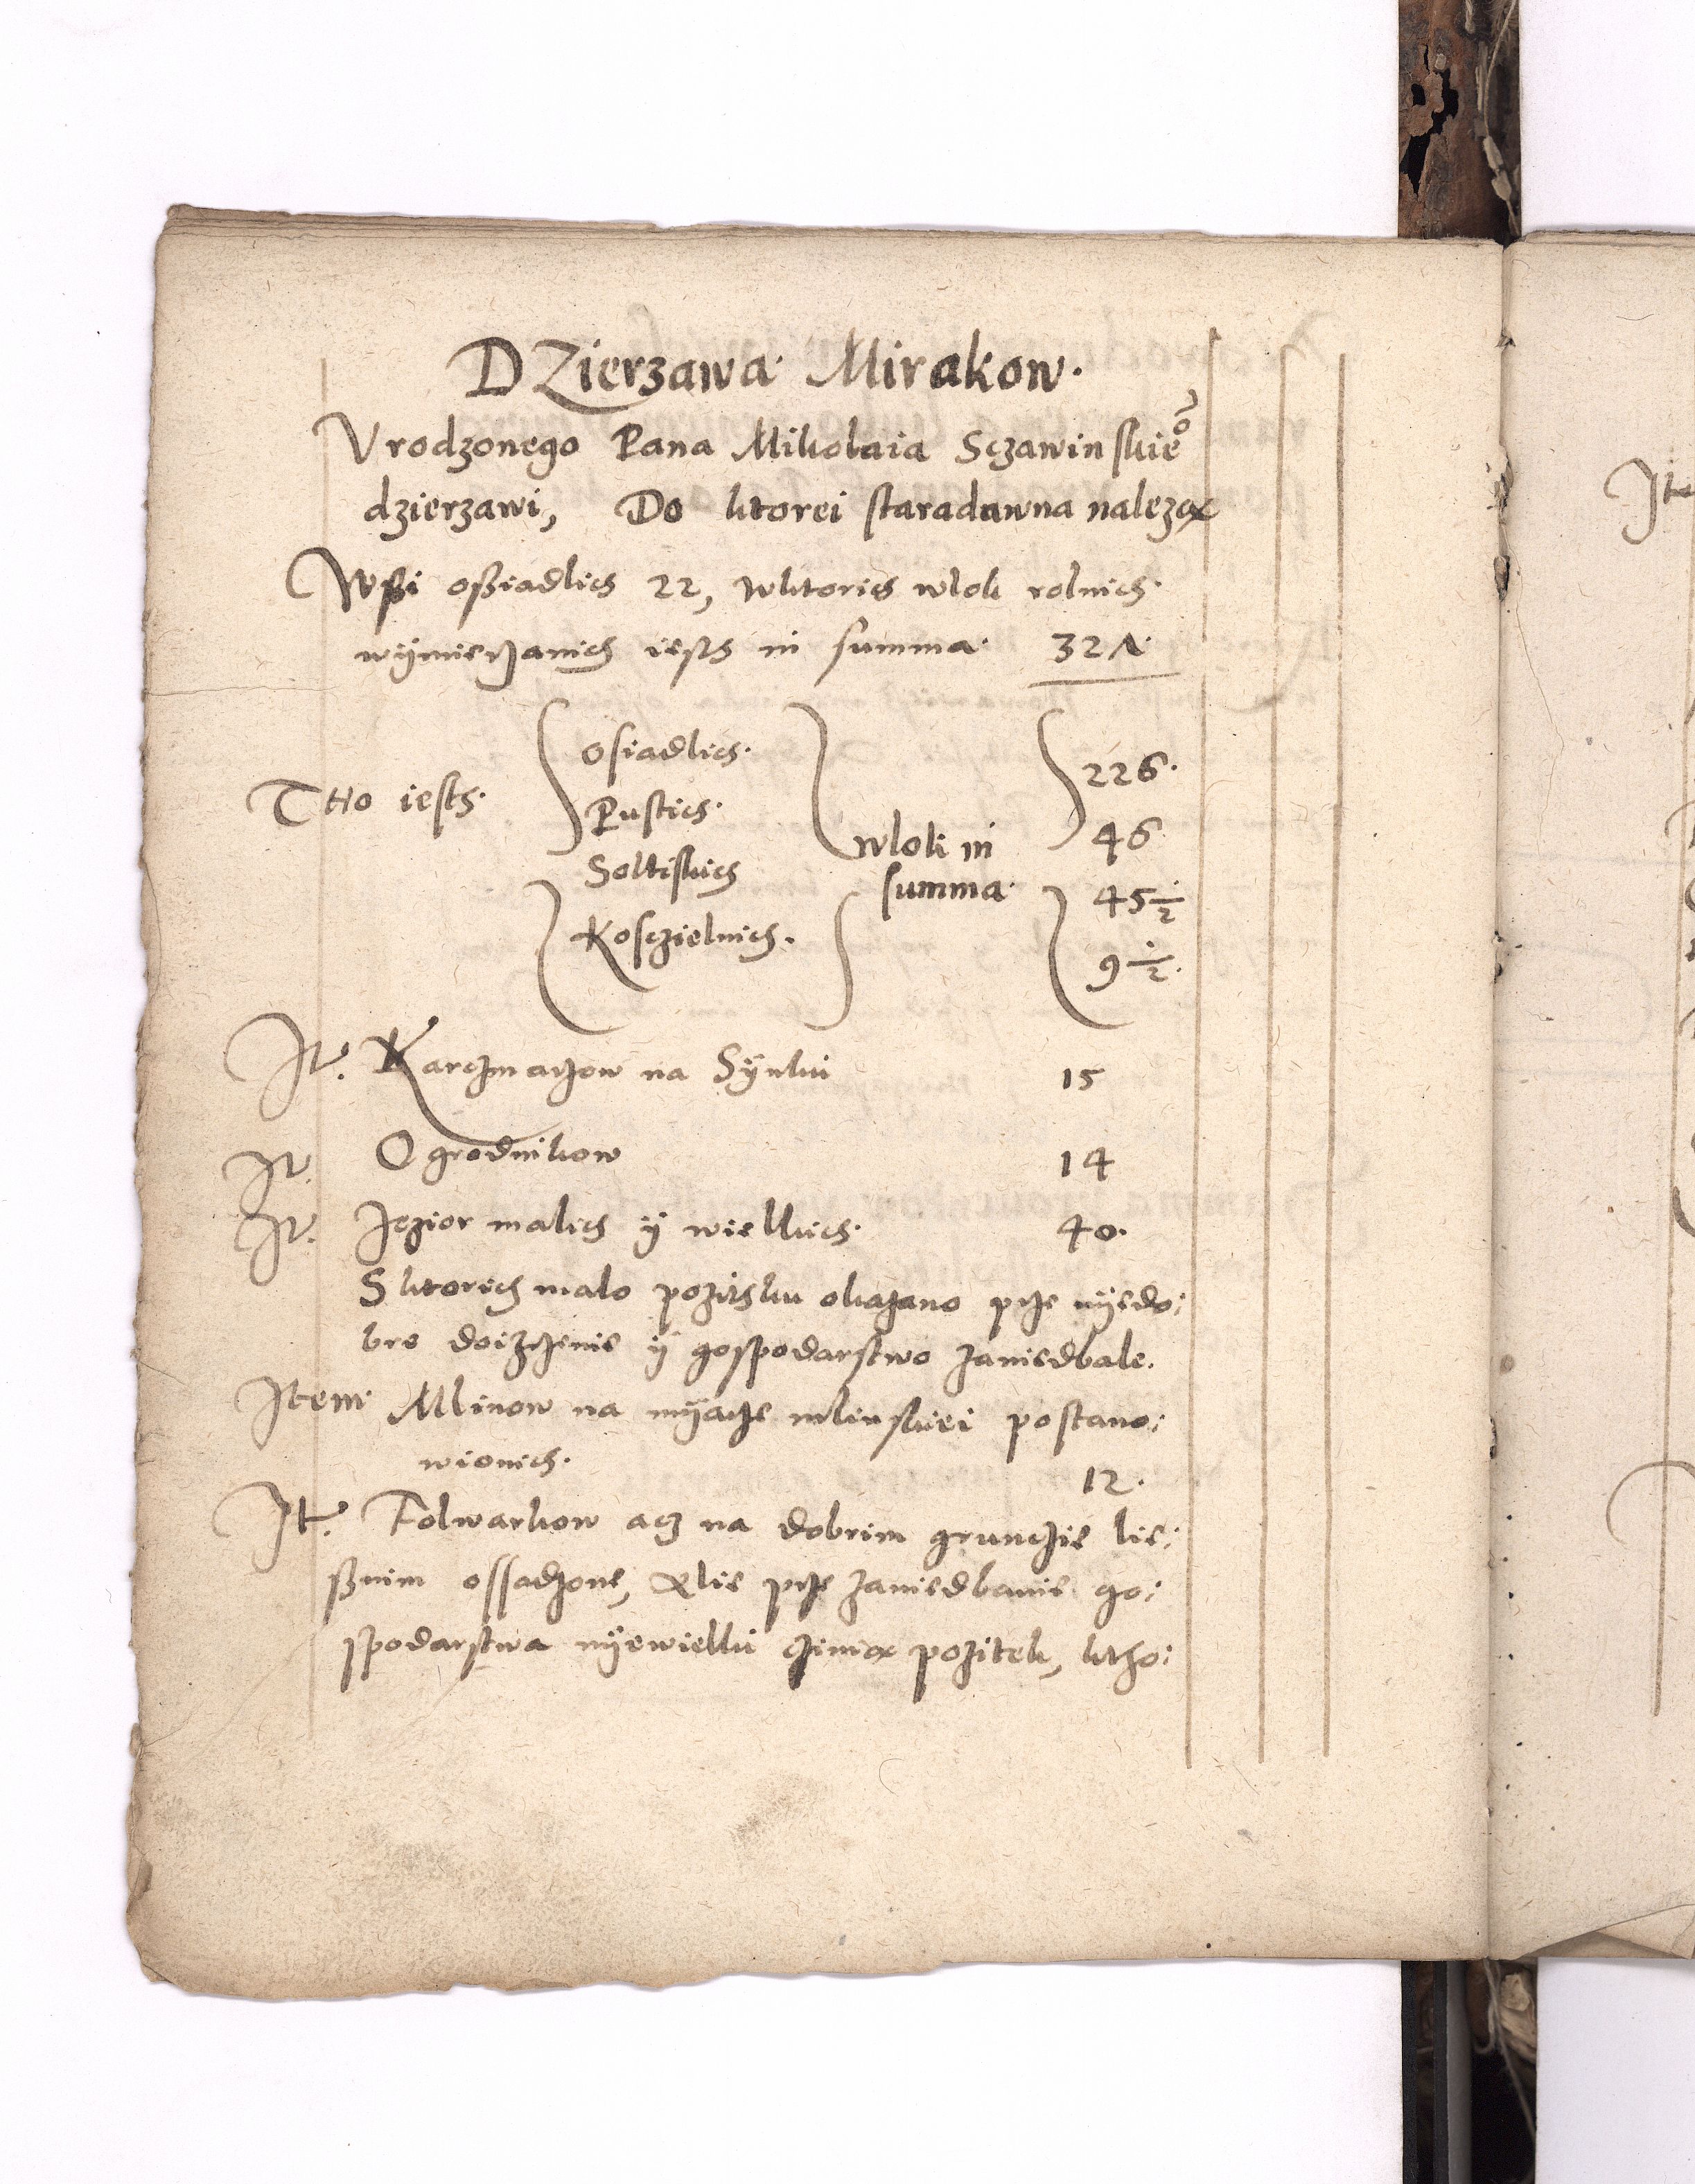 DZierzawa Mirakow.
Vrodzonego Pana Mikolaia Sczawinskie°
dzierzawi, Do ktorei staradawna naleza
Wssi ossiadlich 22, Wktorich wlok rolnich
wÿmierzanich iesth in summa. 327.
Ttho iesth.
Osiadlich. 226.
Pustich. 46
Soltiskich 45 ½
Kosczielnich. 9 ½.
wlok in
summa.
It. Karczmarzow na Sÿnku 15
It. Ogrodnikow 14
It. Jezior malich ÿ wielkich. 40.
S ktorich malo pozithku okazano prze nÿedo:
bre doizrzenie ÿ gospodarstwo zaniedbale.
Item Mlinow na mÿarze mlinskiei postano:
wionich. 12.
It. Folwarkow acz na dobrim grunczie lie:
ssnim ossadzone, Alie prze zaniedbanie go:
spodarstwa nÿewielki czinia pozitek, ktho:
It